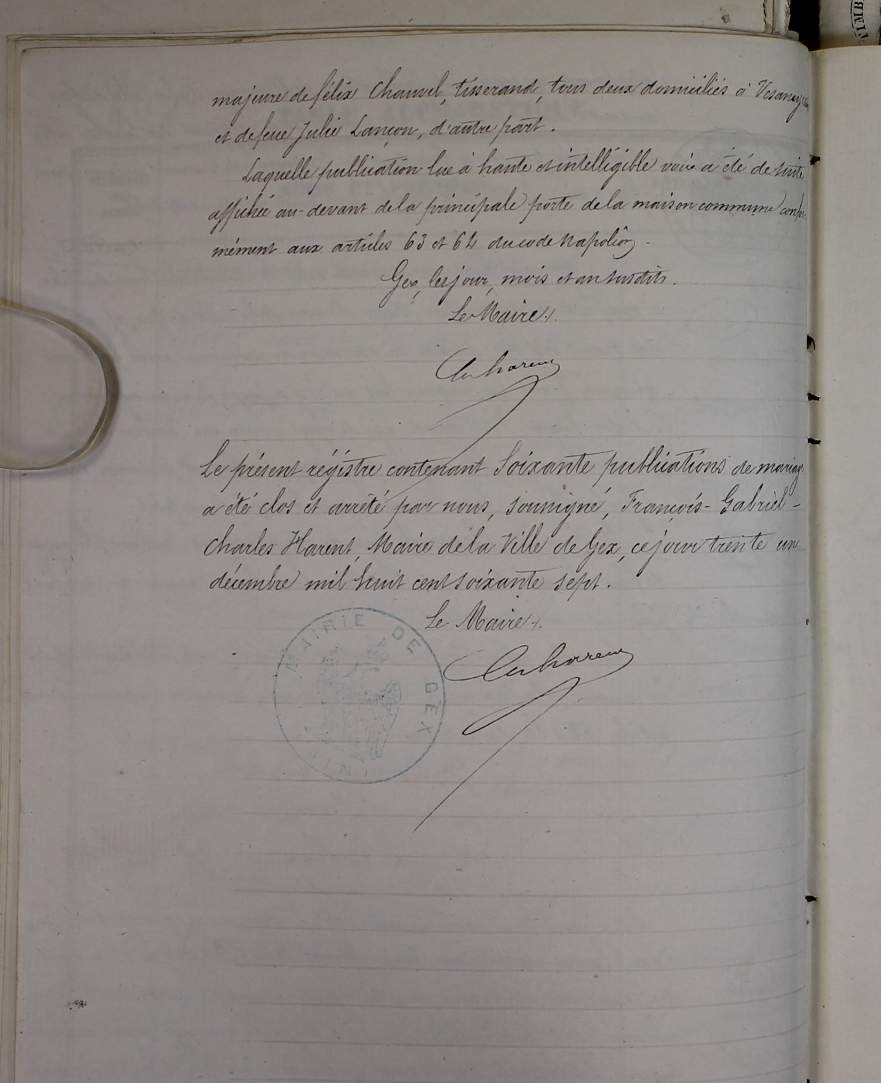 majeure de félix Chauvel, tisserand, tous deux domiciliés à Vesancy
et de feue Julie Lançon, d'autre part.
Laquelle publication lue à haute et intelligible voix a été de suite
affichée au-devant de la principale porte de la maison commune confor-
mément aux articles 63 et 64 du code Napoléon.
Gex, les jour, mois et an susdits.
Le Maire.
Le présent régistre contenant Soixante publications de mariage
a été clos et arrêté par nous, soussigné, François-Gabriel-
Charles Harent, Maire de la Ville de Gex, ce jour trente un
décembre mil huit cent soixante sept.
Le Maire.
MAIRIE DE GEX